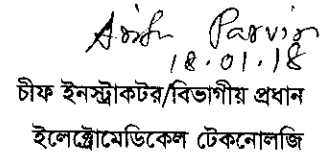 Parvin
18.01.18
চীফ ইনস্ট্রাকটর/বিভাগীয় প্রধান
ইলেক্ট্রোমেডিকেল টেকনোলজি